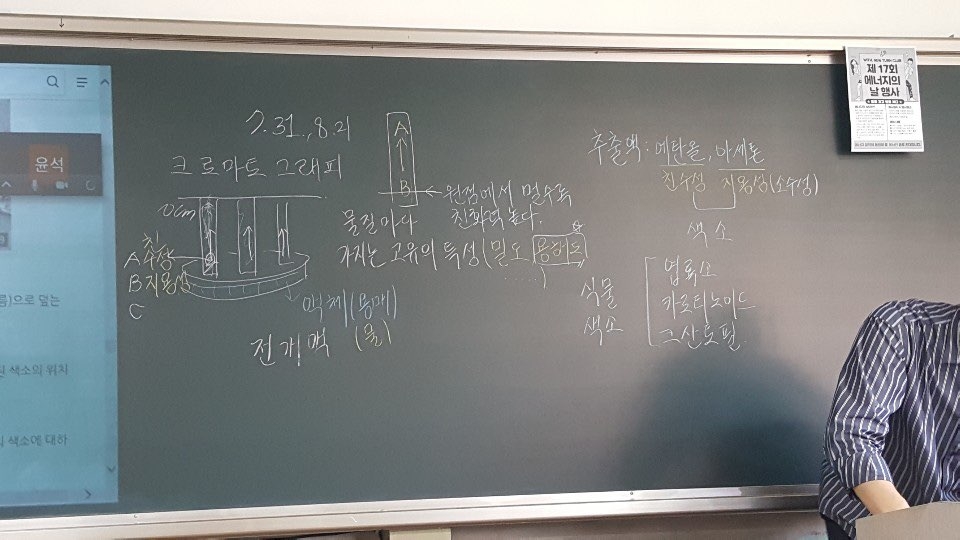 윤석
름)으로 덮는
색소의 위치
색소에 대하
7.31., 8.21
크로마토그래피
10cm
A 친수성
B 지용성
C
액체(용매)
(물)
전개액
A
B
원점에서 멀수록
친화력 높다.
물질마다
가지는 고유의 특성(밀도, 용해도
.....)
추출액: 에탄올, 아세톤
친수성 지용성(소수성)
색소
식물
색소
엽록소
카로티노이드
크산토필
제 17회
에너지의
날 행사